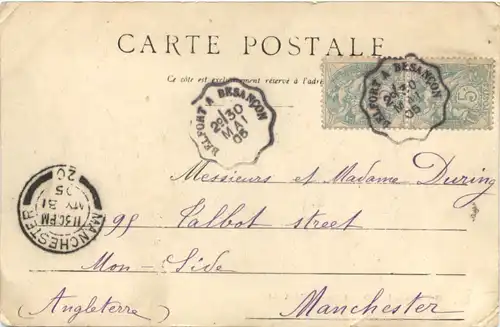 CARTE POSTALE
Ce côté est exclusivement réservé à l'adre
BELFORT A BESANÇON
2º/30
MAI
05
BELFORT A BESANÇON
2º/30
05
Messieurs et Madame During
99 Talbot street
Mon-Side
(Angleterre) Manchester
MANCHESTER
11 30 PM
MY 31
05
20